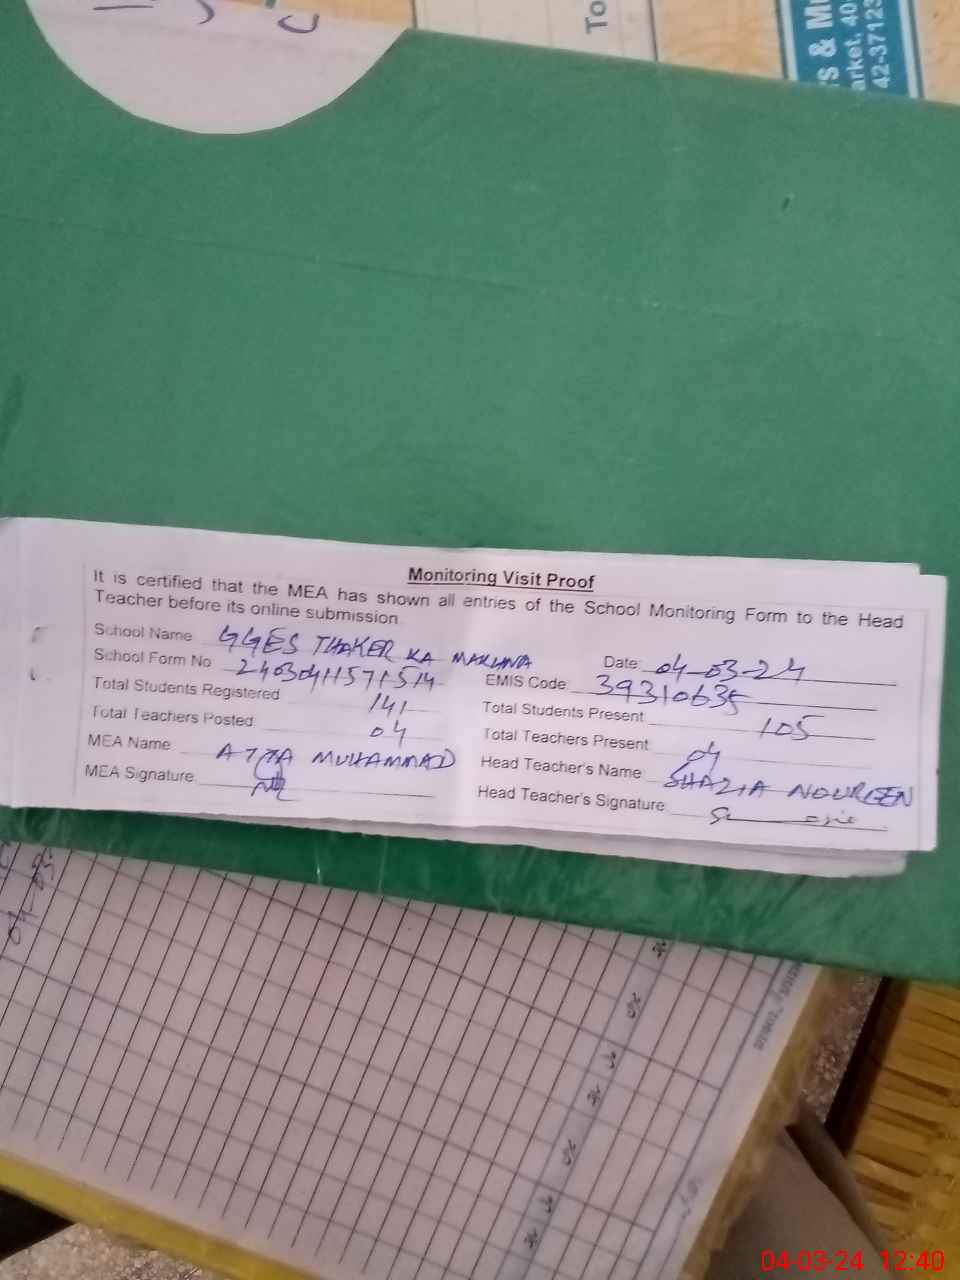 To
rs & Mu
arket, 40
42-37123
Monitoring Visit Proof
It is certified that the MEA has shown all entries of the School Monitoring Form to the Head
Teacher before its online submission
School Name GGES THAKER KA MAKHNA Date: 04-03-24
School Form No 24030411571514 EMIS Code 39310635
Total Students Registered 141 Total Students Present 105
Total Teachers Posted 04 Total Teachers Present 04
MEA Name ATTA MUHAMMAD Head Teacher's Name SHAZIA NOUREEN
MEA Signature Head Teacher's Signature
04-03-24 12:40